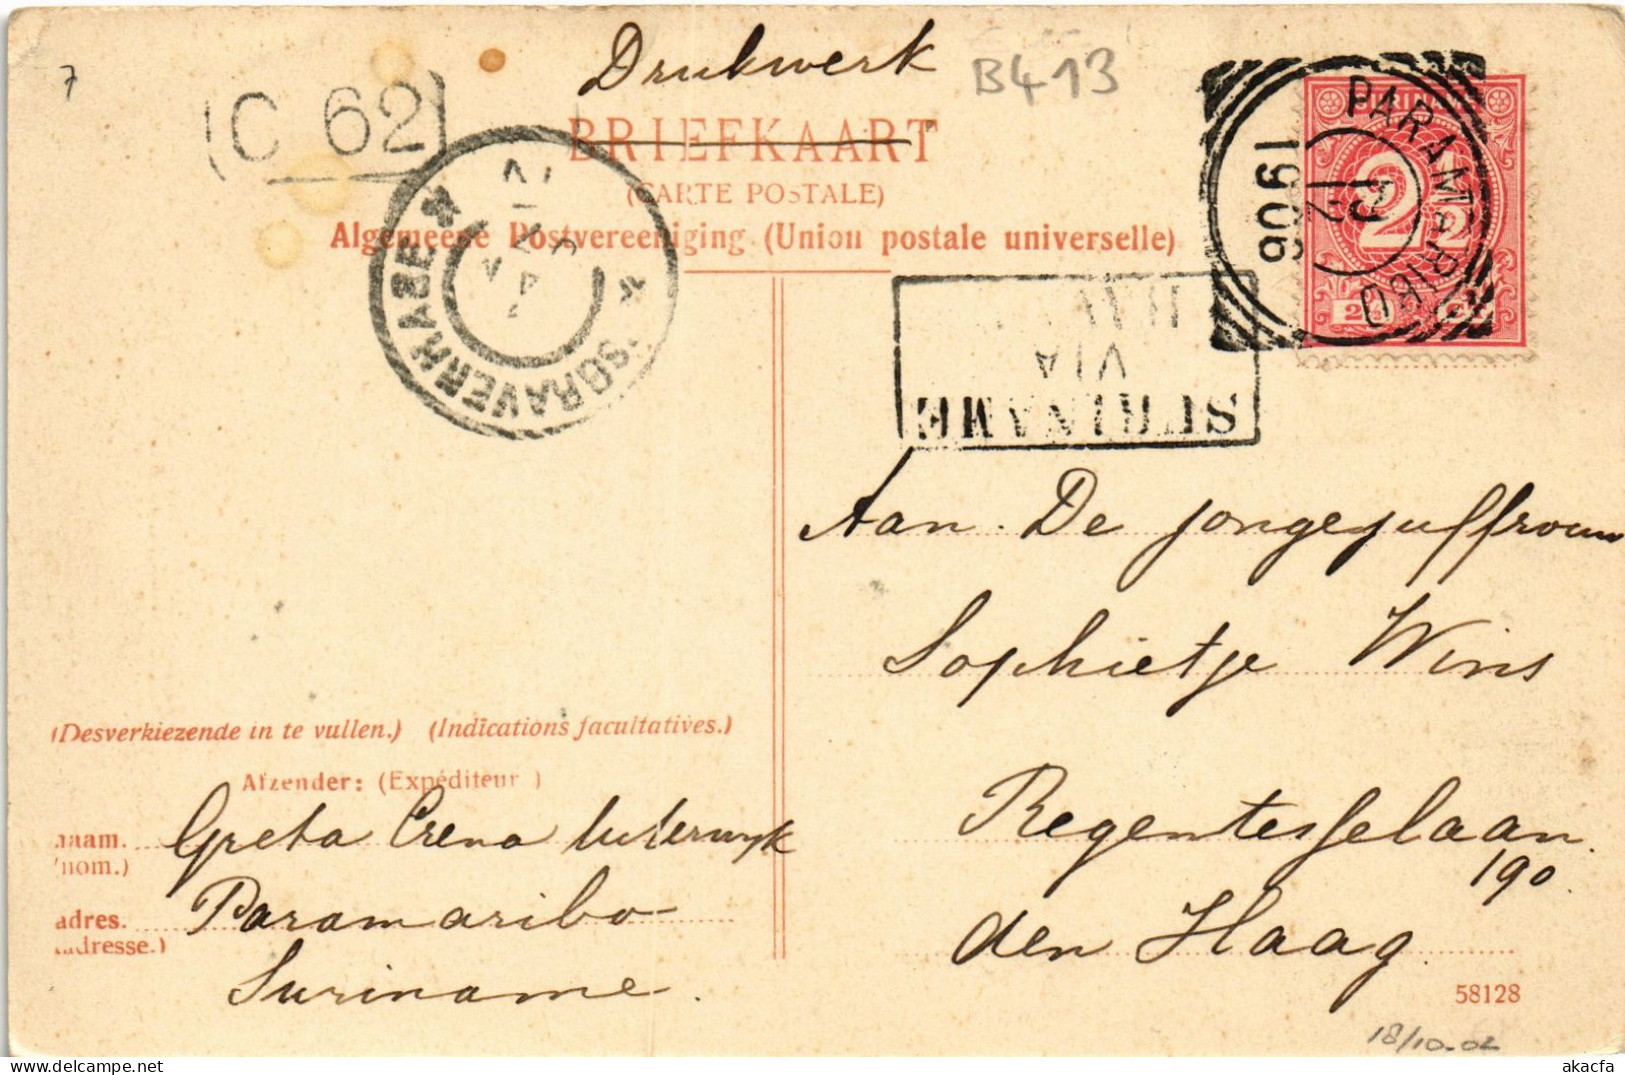 7
Drukwerk
B413
(C 62)
BRIEFKAART
(CARTE POSTALE)
Algemeene Postvereeniging (Union postale universelle)
SURINAME
2½
PARAMARIBO
1906
'SGRAVENHAGE
SURINAME
VIA
Aan De jongejuffrouw
Sophietje Wins
Regentesselaan
190.
den Haag.
(Desverkiezende in te vullen.) (Indications facultatives.)
Afzender: (Expéditeur )
naam. Greta Crena
(nom.)
adres. Paramaribo
(adresse.)
Suriname.
58128
18/10-02
akacfa